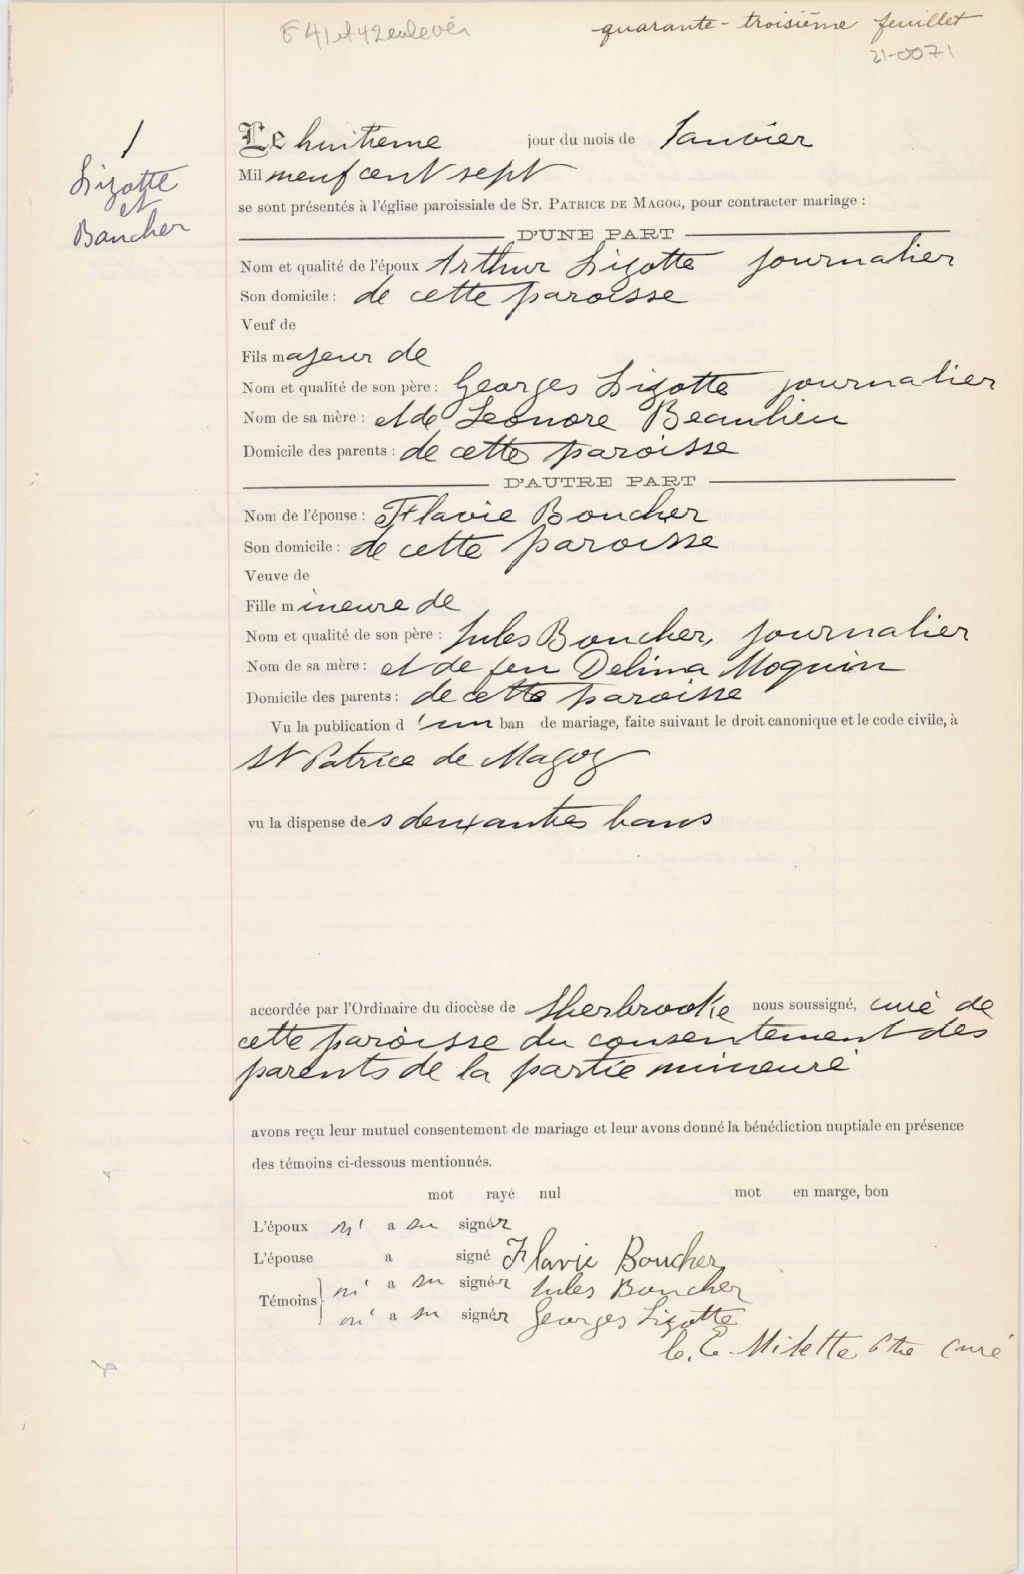 F 41 et 42 enlevés
quarante-troisième feuillet
21-0071
1
Lizotte
et
Boucher
Le huitieme jour du mois de Janvier
Mil neuf cent sept
se sont présentés à l'église paroissiale de St. Patrice de Magog, pour contracter mariage :
D'UNE PART
Nom et qualité de l'époux Arthur Lizotte journalier
Son domicile : de cette paroisse
Veuf de
Fils majeur de
Nom et qualité de son père : Georges Lizotte journalier
Nom de sa mère : et de Leonore Beaulieu
Domicile des parents : de cette paroisse
D'AUTRE PART
Nom de l'épouse : Flavie Boucher
Son domicile : de cette paroisse
Veuve de
Fille mineure de
Nom et qualité de son père : Jules Boucher, journalier
Nom de sa mère : et de feu Delima Moquin
Domicile des parents : de cette paroisse
Vu la publication d'un ban de mariage, faite suivant le droit canonique et le code civile, à
St Patrice de Magog
vu la dispense des deux autres bans
accordée par l'Ordinaire du diocèse de Sherbrooke nous soussigné, curé de
cette paroisse du consentement des
parents de la partie mineure
avons reçu leur mutuel consentement de mariage et leur avons donné la bénédiction nuptiale en présence
des témoins ci-dessous mentionnés.
mot rayé nul mot en marge, bon
L'époux n' a su signér
L'épouse a signé Flavie Boucher
Témoins n' a su signér Jules Boucher
n' a su signér Georges Lizotte
C. E. Milette Ptre Curé